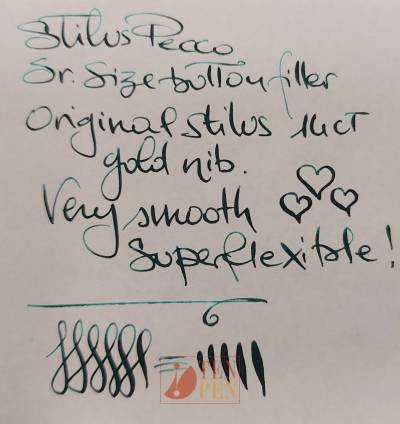 Stilus Pecco
Sr. Size button filler
Original Stilus 14CT
gold nib.
Very smooth
Superflexible!
PEN
PEN